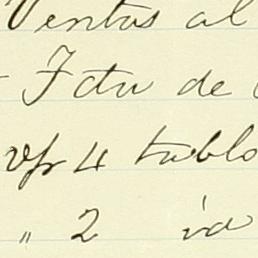 Ventas al
Fctu de
vpr 4 tablo
" 2 id